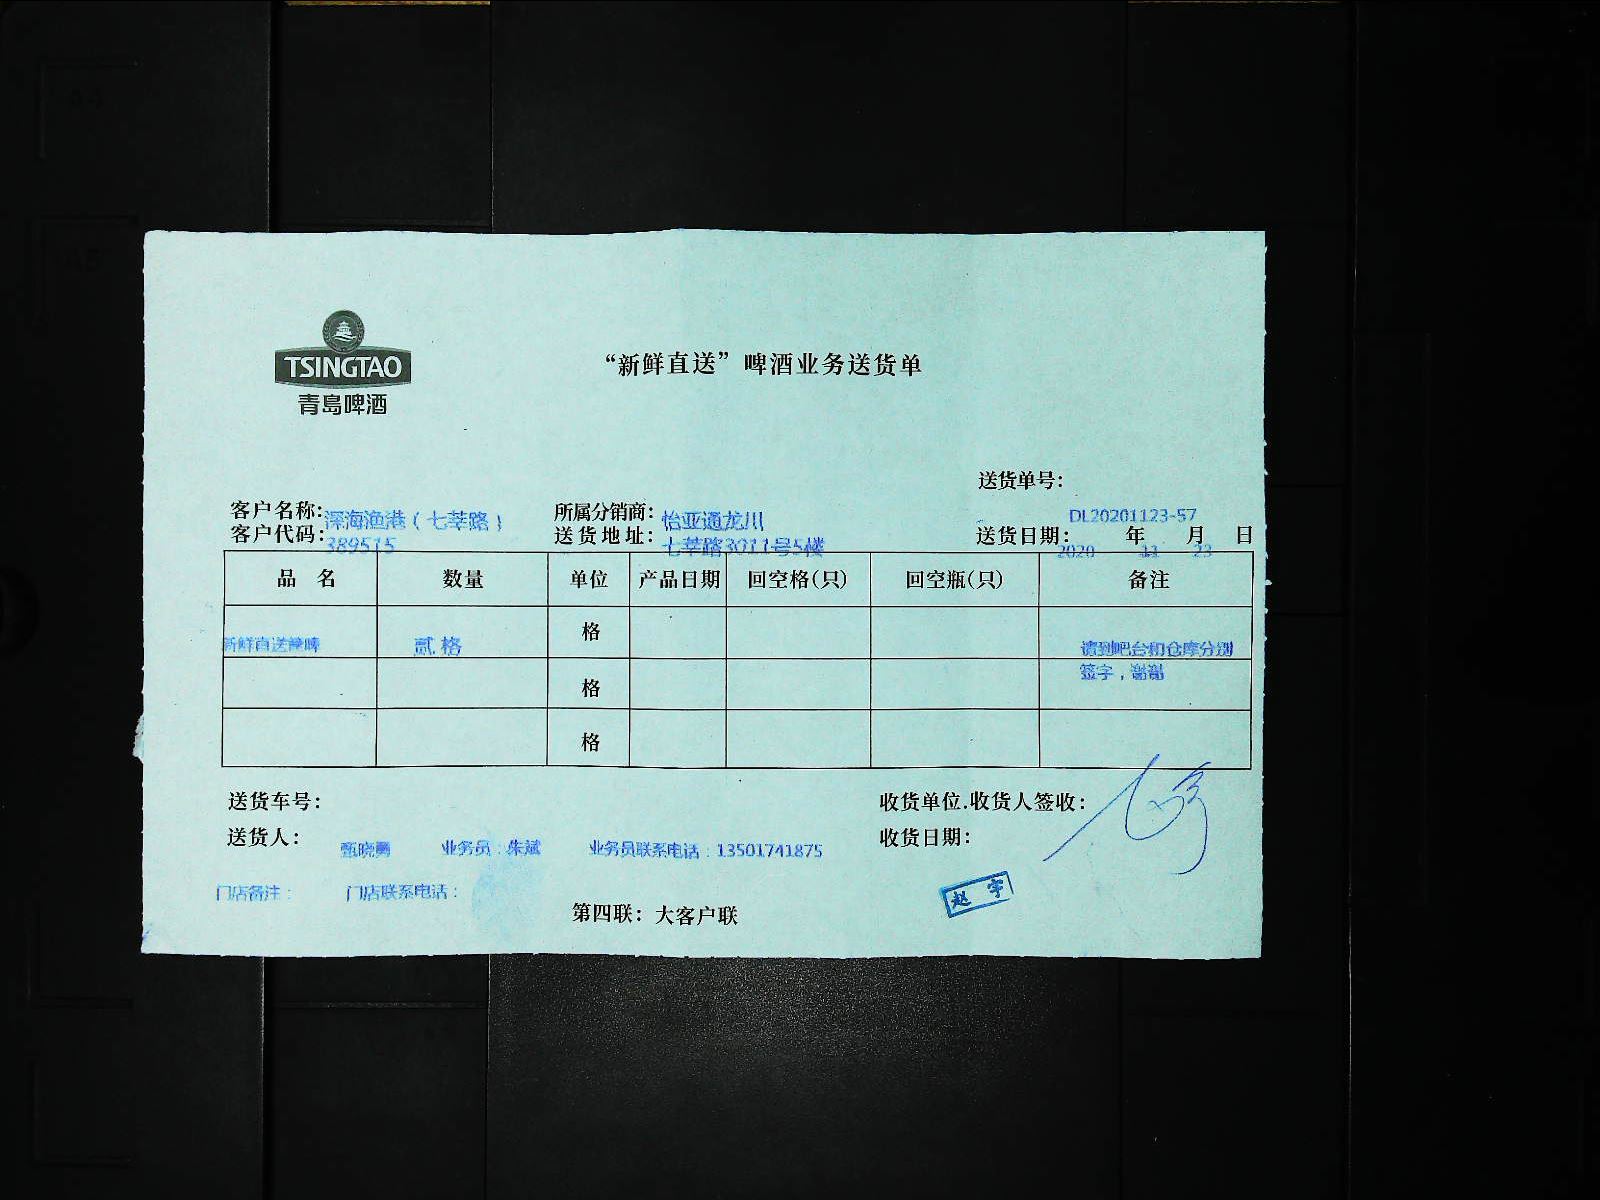 TSINGTAO
青岛啤酒
“新鲜直送”啤酒业务送货单
送货单号：
DL20201123-57
客户名称：深海渔港（七莘路） 所属分销商：怡亚通龙川
客户代码：389515 送货地址：七莘路3011号5楼 送货日期：2020 年 11 月 23 日
品 名 数量 单位 产品日期 回空格(只) 回空瓶(只) 备注
新鲜直送 贰格 格 请到吧台和仓库分别
格 签字，谢谢
格
送货车号： 收货单位.收货人签收：
送货人：甄晓勇 业务员：朱斌 业务员联系电话：13501741875 收货日期：
门店备注： 门店联系电话：
赵 宇
第四联：大客户联